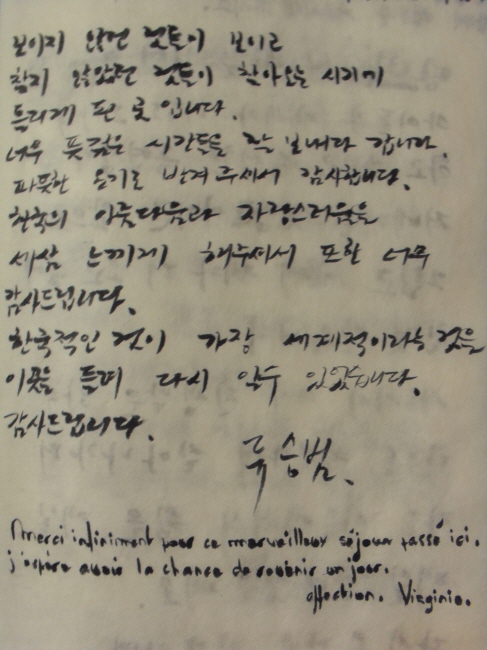 보이지 않던 것들이 보이고
찾지 않았던 것들이 찾아오는 시기에
들리게 된 곳 입니다.
너무 뜻깊은 시간들을 잘 보내다 갑니다.
따뜻한 온기로 반겨주셔서 감사합니다.
한국의 아름다움과 자랑스러움을
새삼 느끼게 해주셔서 또한 너무
감사드립니다.
한국적인 것이 가장 세계적이라는 것을
이곳을 들려 다시 알수 있었습니다.
감사드립니다.
류승범.
Merci infiniment pour ce merveilloux séjour passé ici.
j'espère avoir la chance de revenir un jour.
affection. Virginie.